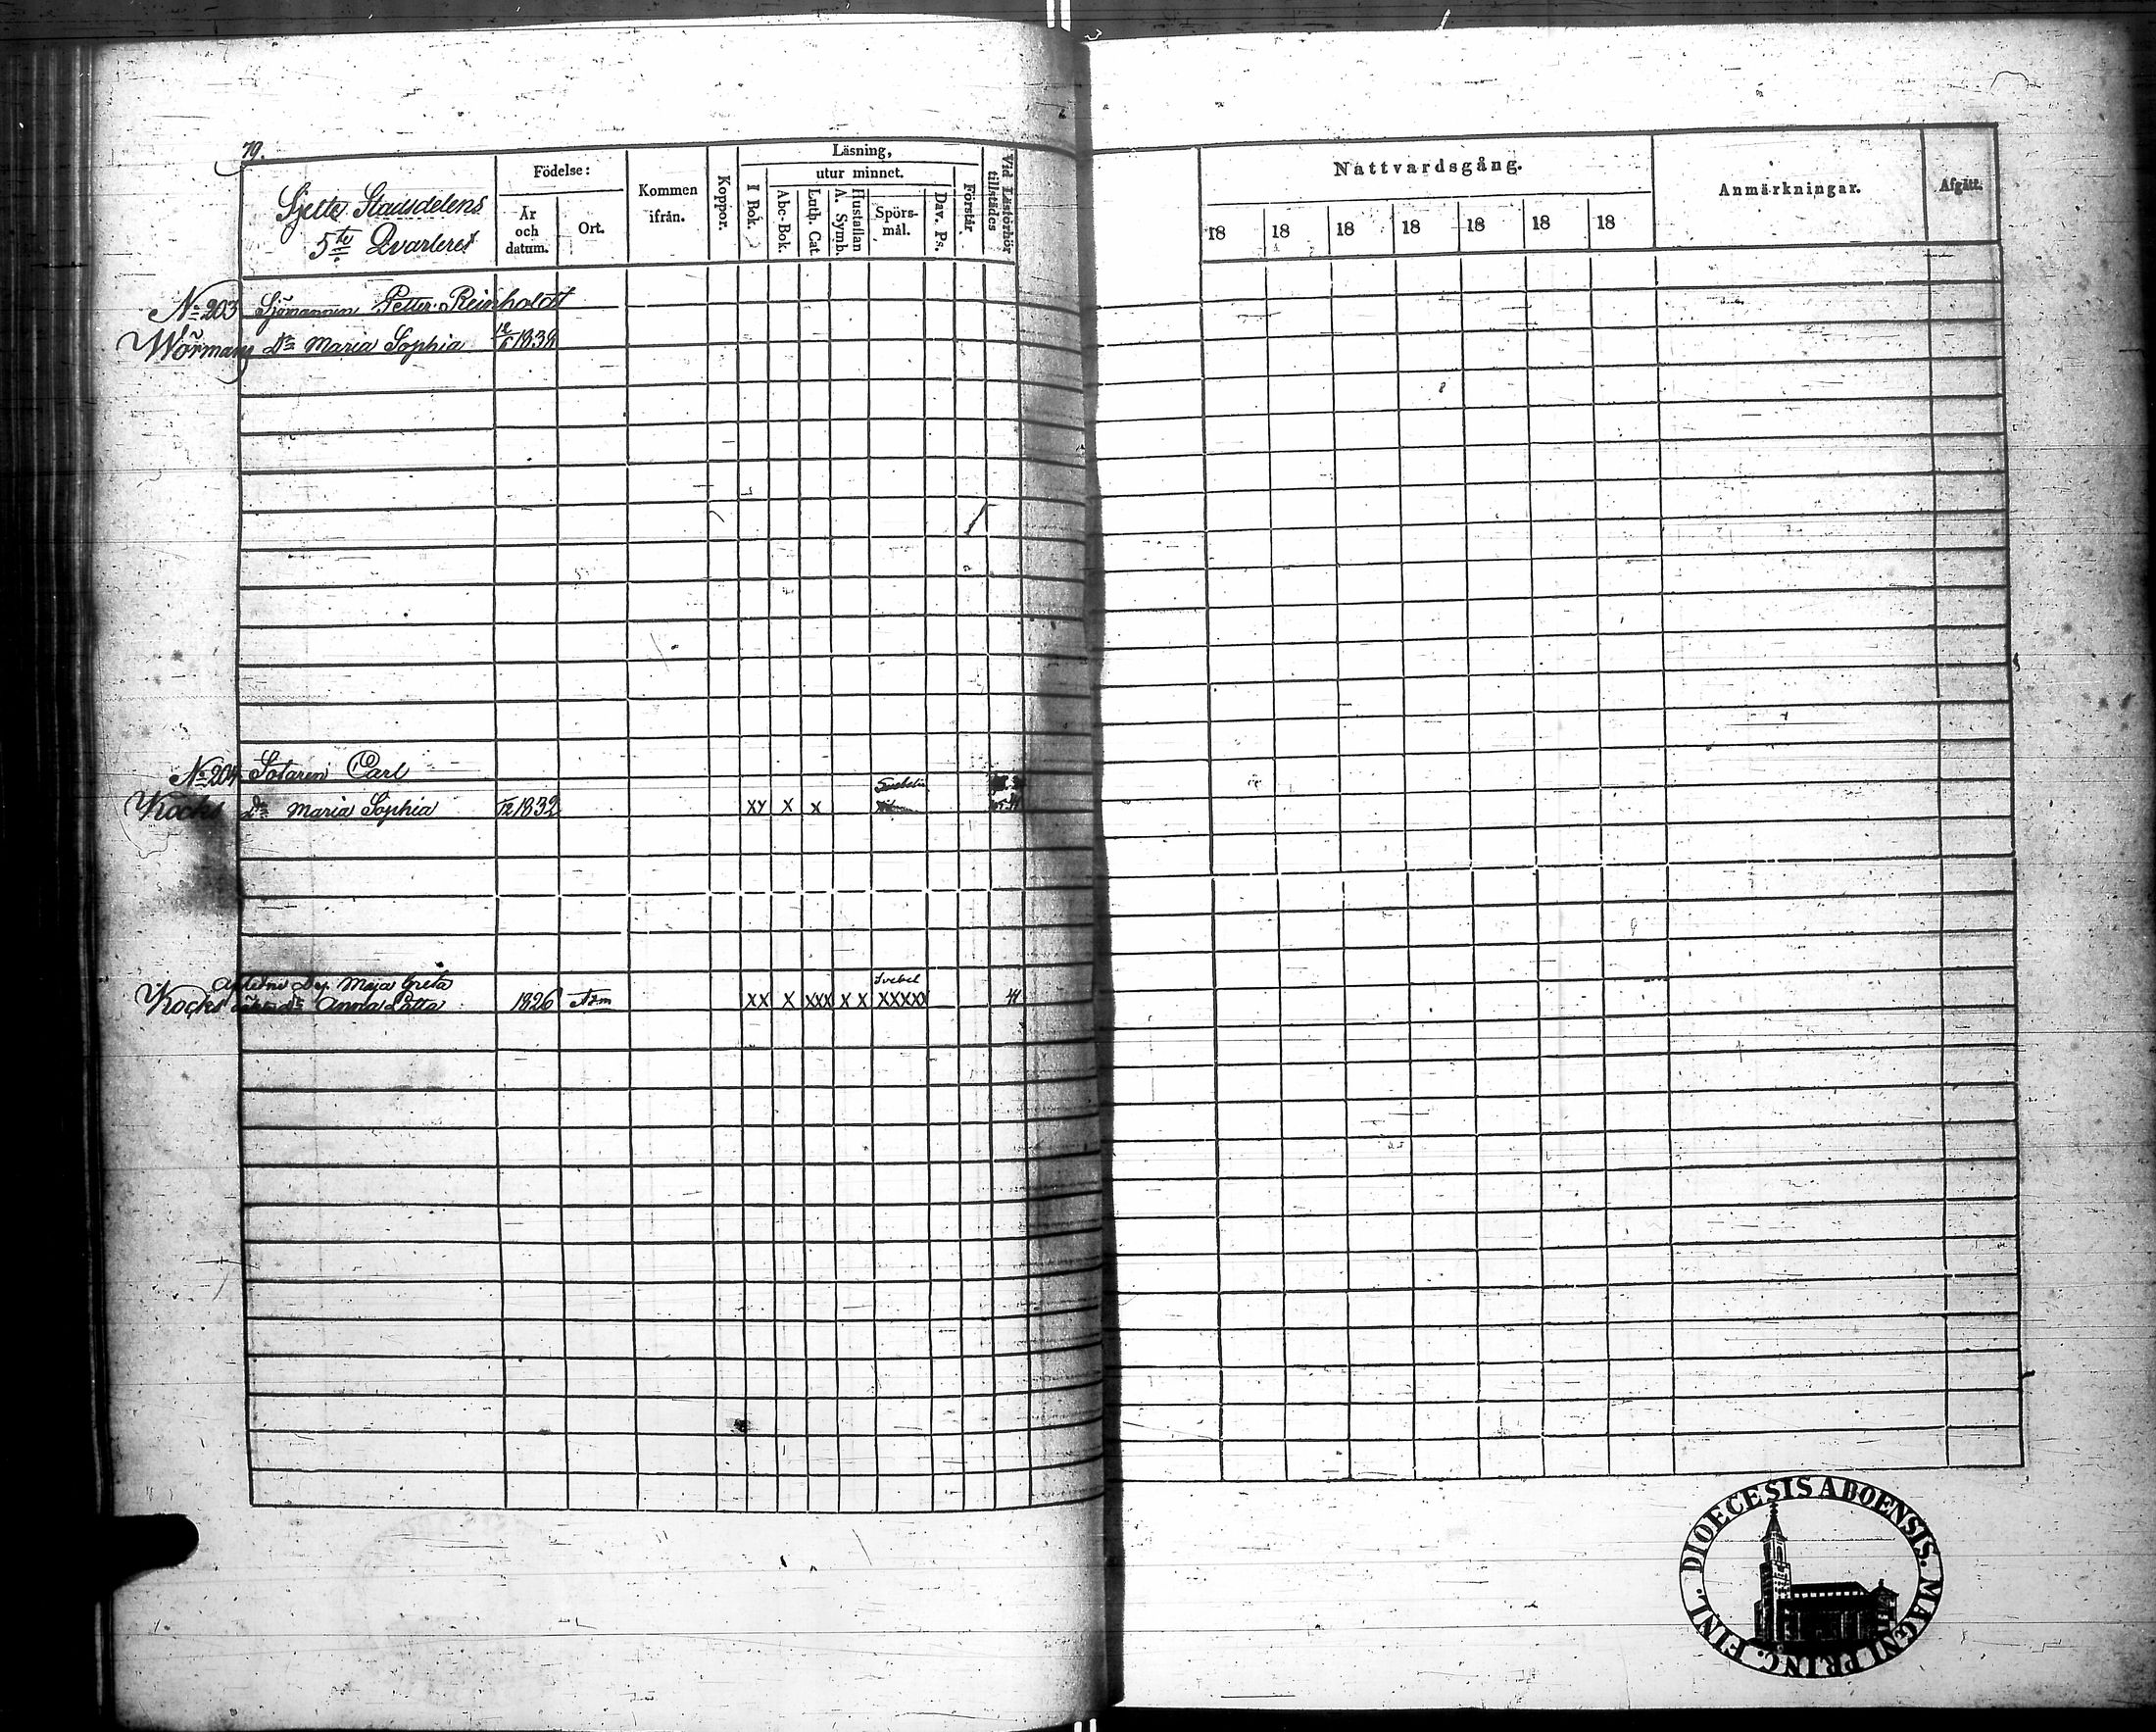 79.
Sjette Stadsdelens
5te Qvarteret
Födelse:
År och datum.
Ort.
Kommen ifrån.
Koppor.
Läsning,
I Bok.
utur minnet.
Abc-Bok.
Luth. Cat.
Hustaflan A. Symb.
Spörsmål.
Dav. Ps.
Förstår
Vid Läsförhör tillstädes
Nattvardsgång.
18 18 18 18 18 18 18
Anmärkningar.
Afgått.
No 203 Sjömannen Petter Reinholdt
Wörmans dr Maria Sophia 12/6 1838
No 204 Sotaren Carl
Kocks dr Maria Sophia /12 1832 XX X X
Maja Greta Svebel
Kocks dr Anna Lotta 1826 XX X XXX X X XXXXX 41
DIOECESIS ABOENSIS. MAGNI PRINC. FINL.